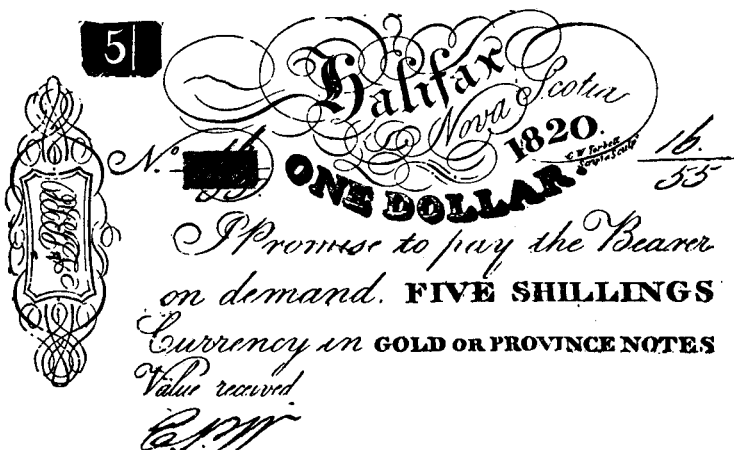 5
Halifax
Nova Scotia
1820.
No. 16 55
ONE DOLLAR.
I Promise to pay the Bearer
on demand. FIVE SHILLINGS
Currency in GOLD OR PROVINCE NOTES
Value received